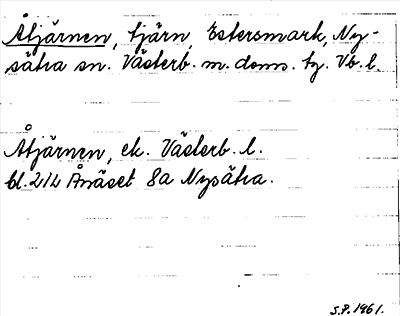 Åtjärnen, tjärn, Estersmark, Ny-
sätra sn. Västerb. m. doms. tg. Vb. l.
Åtjärnen, ek. Västerb. l.
bl. 212 Ånäset 8a Nysätra.
S.P. 1961.